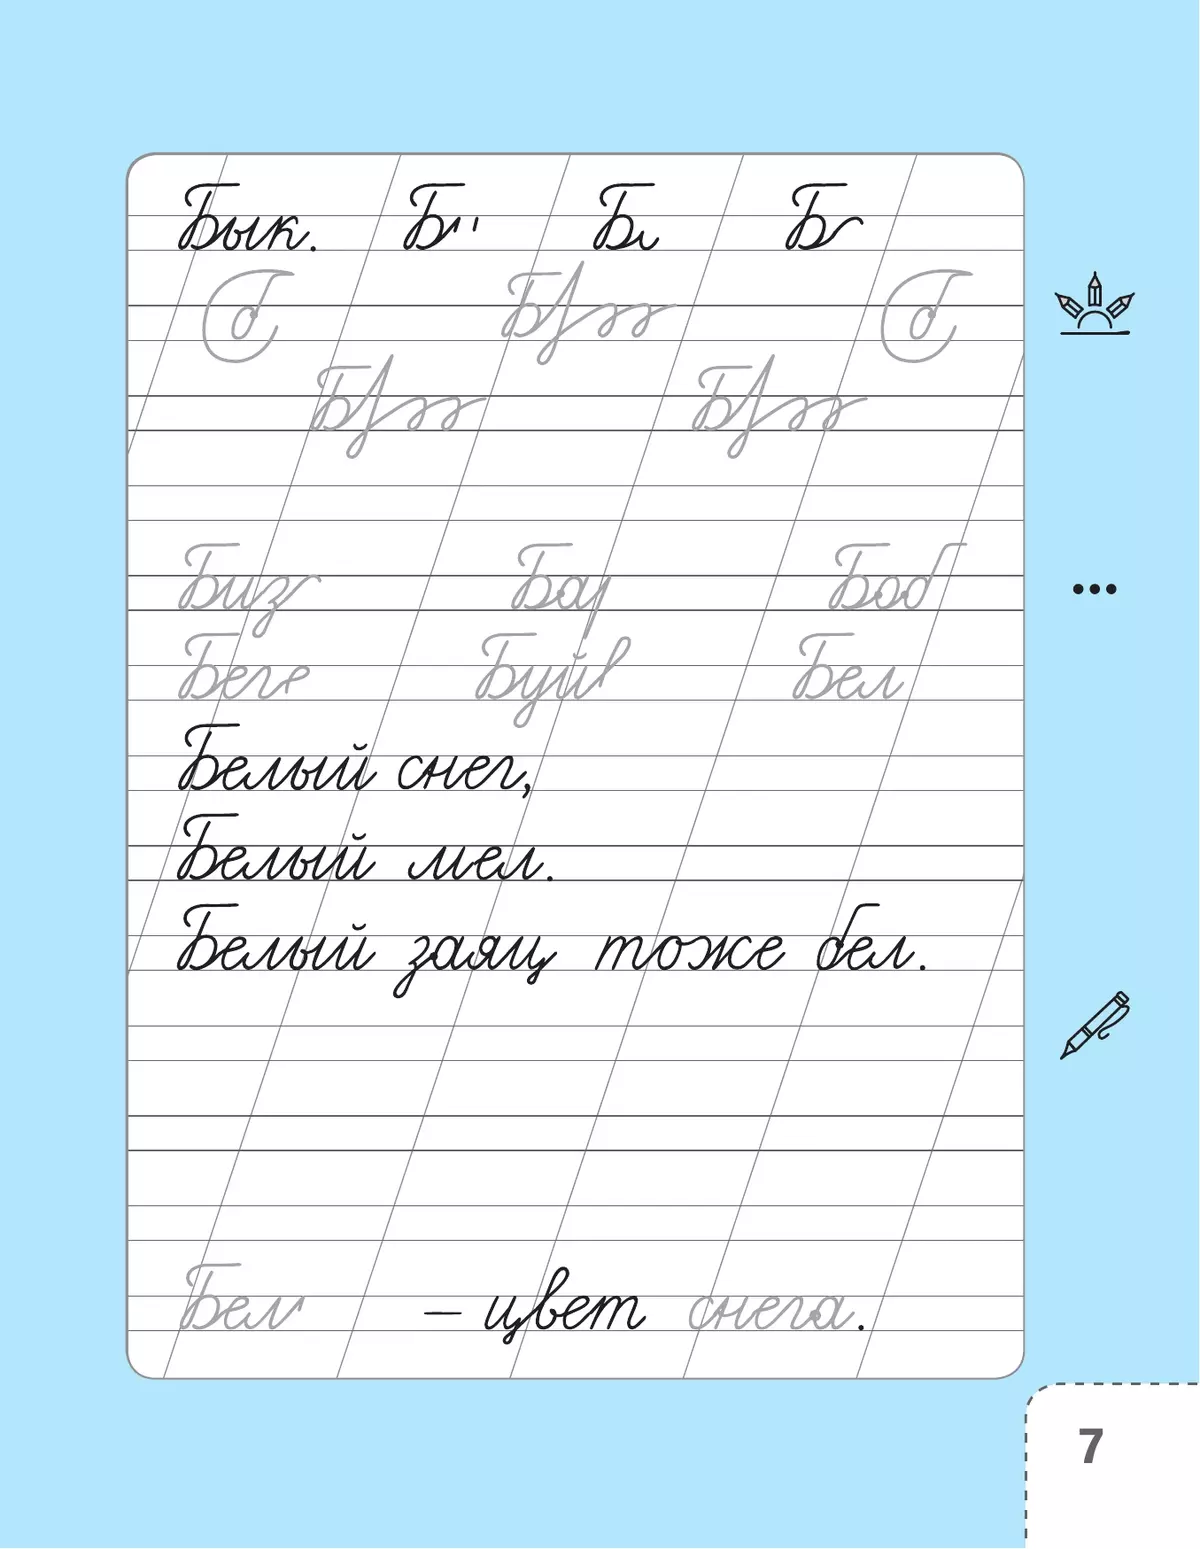 Бык. Б Б Б
Б Б
Биз Бау Боб
Беге Буй Бел
Белый снег,
Белый мел.
Белый заяц тоже бел.
Бел — цвет снега.
7